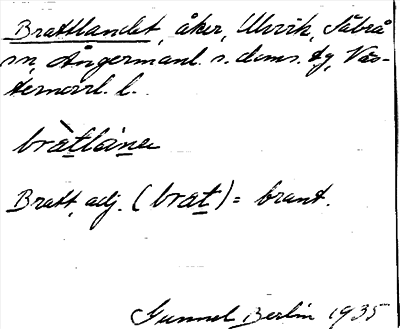 Brattlandet, åker, Ulvvik, Säbrå
sn, Ångermanl. s. doms. tg, Väs-
ternorrl. l.
bràtlàne
Bratt, adj. (brat) = brant.
Gunnel Berlin 1935